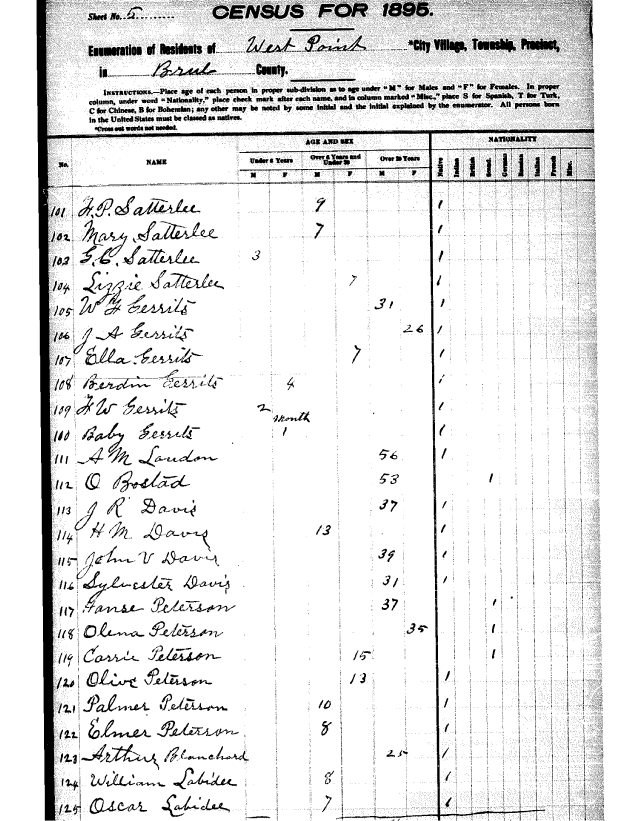 Sheet No. 5
CENSUS FOR 1895.
Enumeration of Residents of West Point *City Village, Township, Precinct,
in Brul County.
INSTRUCTIONS.—Place age of each person in proper sub-division as to age under "M" for Males and "F" for Females. In proper
column, under word "Nationality," place check mark after each name, and in column marked "Misc.," place S for Spanish, T for Turk,
C for Chinese, B for Bohemian; any other may be noted by some initial and the initial explained by the enumerator. All persons born
in the United States must be classed as natives.
*Cross out words not needed.
No. NAME AGE AND SEX NATIONALITY
Under 6 Years Over 6 Years and Under 20 Over 20 Years
M F M F M F Native Indian British Scand. German Russian Italian French Misc.
101 H.P. Satterlee 9 1
102 Mary Satterlee 7 1
103 G.C. Satterlee 3 1
104 Lizzie Satterlee 7 1
105 W H Gerrits 31 1
106 J A Gerrits 26 1
107 Ella Gerrits 7 1
108 Berdin Gerrits 4 1
109 H W Gerrits 2 1
month
100 Baby Gerrits 1 1
111 A M Loudon 56 1
112 O Bostad 53 1
113 J R Davis 37 1
114 H M Davis 13 1
115 John V Davis 39 1
116 Sylvester Davis 31 1
117 Hanse Peterson 37 1
118 Olena Peterson 35 1
119 Carrie Peterson 15 1
120 Olive Peterson 13 1
121 Palmer Peterson 10 1
122 Elmer Peterson 8 1
123 Arthur Blanchard 25 1
124 William Labidee 8 1
125 Oscar Labidee 7 1